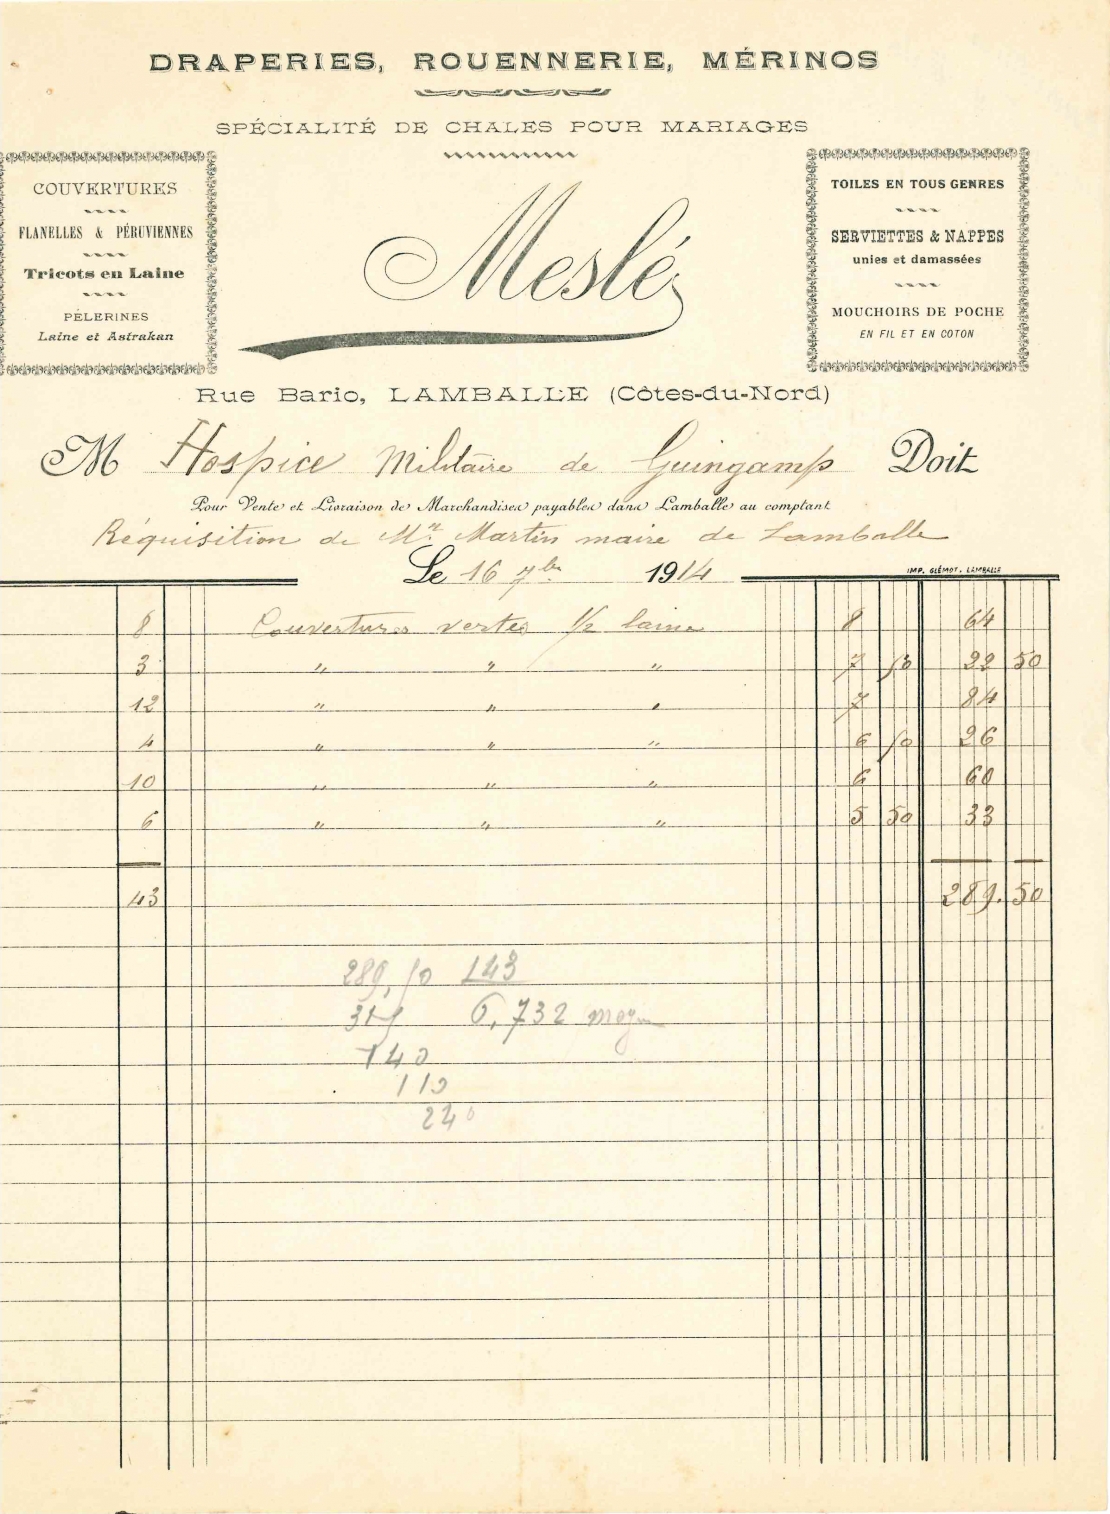 DRAPERIES, ROUENNERIE, MÉRINOS
SPÉCIALITÉ DE CHALES POUR MARIAGES
COUVERTURES
FLANELLES & PÉRUVIENNES
Tricots en Laine
PÉLERINES
Laine et Astrakan
Meslé
TOILES EN TOUS GENRES
SERVIETTES & NAPPES
unies et damassées
MOUCHOIRS DE POCHE
EN FIL ET EN COTON
Rue Bario, LAMBALLE (Côtes-du-Nord)
M Hospice Militaire de Guingamp Doit
Pour Vente et Livraison de Marchandises payables dans Lamballe au comptant
Réquisition de Mr Martin maire de Lamballe
Le 16 7bre 1914
IMP. GLÉMOT. LAMBALLE
8 Couvertures vertes 1/2 laine 8 64
3 " " " 7 50 22 50
12 " " " 7 84
4 " " " 6 50 26
10 " " " 6 60
6 " " " 5 50 33
43 289.50
289,50 143
315 6,732
140
110
240